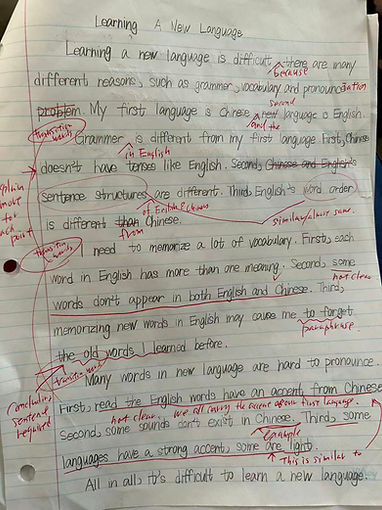 Learning A New Language
Learning a new language is difficult, there are many
because
different reasons, such as grammer, vocabulary and pronounciation
problem. My first language is Chinese, a new language is English.
second
and the
transition words
Grammer is different from my first language First, Chinese
in English
doesn't have tenses like English. Second, Chinese and English's
explain more for each point
sentence structures are different. Third, English's word order
of English & Chinese
is different than Chinese.
from
similar/almost same.
transition words
I need to memorize a lot of vocabulary. First, each
word in English has more than one meaning. Second, some
not clear
words don't appear in both English and Chinese. Third,
memorizing new words in English may cause me to forget
paraphrase.
the old words I learned before.
transition words
Many words in new language are hard to pronounce.
Concluding sentence required
First, read the English words have an accent from Chinese
not clear. we all carry the accent of our first language.
Second, some sounds don't exist in Chinese. Third, some
example
languages have a strong accent, some are light.
This is similar to
All in all, it's difficult to learn a new language.